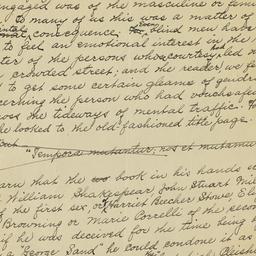 ngaged was of the masculine or femi
to many of us this was a matter of
consequence. blind men have
to feel an emotional interest in the
ter of the persons whose courtesy had led
crowded street; and the reader, we f
to get some certain gleams of gendr
cerning the person who had vouchsafe
ross the tideways of mental traffic.
he looked to the old-fashioned title page.
"Tempora mutantur, nos et mutamu
arn that the book in his hands
William Shakespear, John Stuart Mil
the first sex, or Harriet Beecher Stowe, El
Browning or Marie Corelli of the secon
if he was deceived for the time being
a "George Sand" he could condone it as